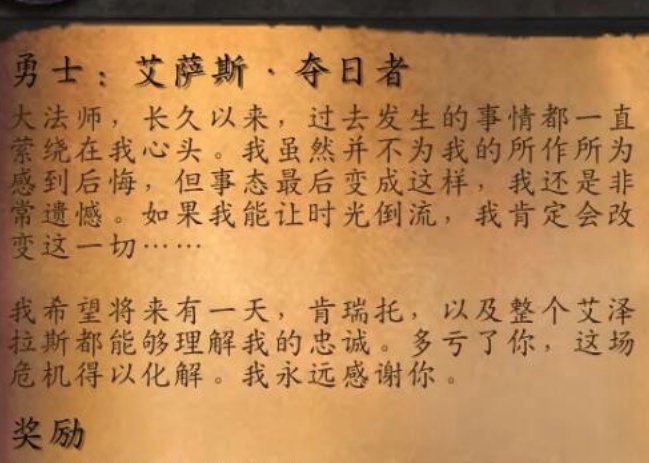 勇士：艾萨斯·夺日者
大法师，长久以来，过去发生的事情都一直
萦绕在我心头。我虽然并不为我的所作所为
感到后悔，但事态最后变成这样，我还是非
常遗憾。如果我能让时光倒流，我肯定会改
变这一切……
我希望将来有一天，肯瑞托，以及整个艾泽
拉斯都能够理解我的忠诚。多亏了你，这场
危机得以化解。我永远感谢你。
奖励